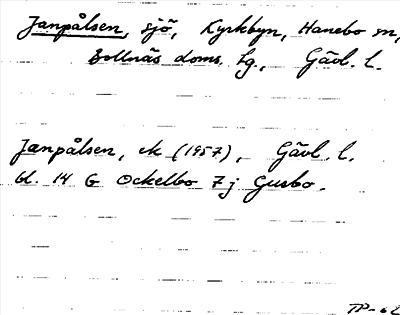 Janpålsen, sjö, Kyrkbyn, Hanebo sn,
Bollnäs doms. lg., Gävl. l.
Janpålsen, ek (1957), Gävl. l.
bl. 14 G Ockelbo 7 j Gusbo.